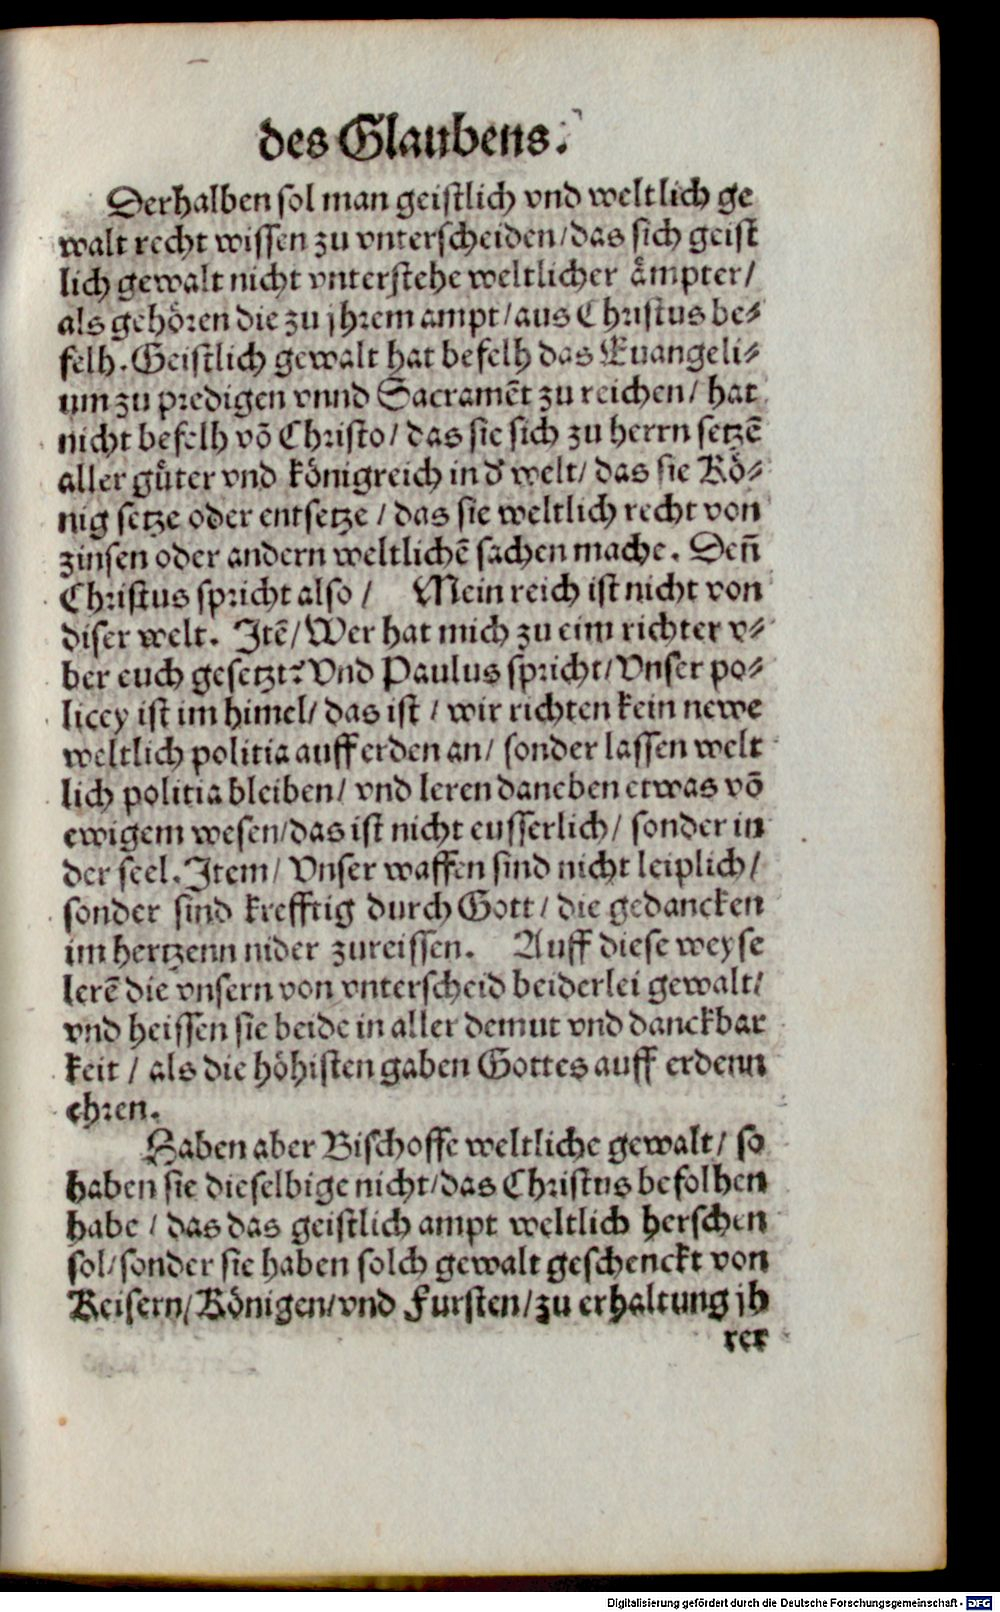 des Glaubens.
Derhalben sol man geistlich vnd weltlich ge
walt recht wissen zu vnterscheiden/das sich geist
lich gewalt nicht vnterstehe weltlicher aͤmpter/
als gehoͤren die zu jhrem ampt/aus Christus be⸗
felh. Geistlich gewalt hat befelh das Euangeli⸗
um zu predigen vnnd Sacramēt zu reichen/ hat
nicht befelh võ Christo/ das sie sich zu herrn setzē
aller guͤter vnd koͤnigreich in d' welt/ das sie Koͤ⸗
nig setze oder entsetze / das sie weltlich recht von
zinsen oder andern weltlichē sachen mache. Deñ
Christus spricht also / Mein reich ist nicht von
diser welt. Itē/ Wer hat mich zu eim richter v⸗
ber euch gesetzt? Vnd Paulus spricht/ Vnser po⸗
licey ist im himel/ das ist / wir richten kein newe
weltlich politia auff erden an/ sonder lassen welt
lich politia bleiben/ vnd leren daneben etwas võ
ewigem wesen/das ist nicht eusserlich/ sonder in
der seel. Item/ Vnser waffen sind nicht leiplich/
sonder sind krefftig durch Gott/ die gedancken
im hertzenn nider zureissen. Auff diese weyse
lerē die vnsern von vnterscheid beiderlei gewalt/
vnd heissen sie beide in aller demut vnd danckbar
keit / als die hoͤhisten gaben Gottes auff erdenn
ehren.
Haben aber Bischoffe weltliche gewalt/ so
haben sie dieselbige nicht/das Christus befolhen
habe / das das geistlich ampt weltlich herschen
sol/sonder sie haben solch gewalt geschenckt von
Keisern/Koͤnigen/vnd Fursten/zu erhaltung jh
rer
Digitalisierung gefördert durch die Deutsche Forschungsgemeinschaft - DFG